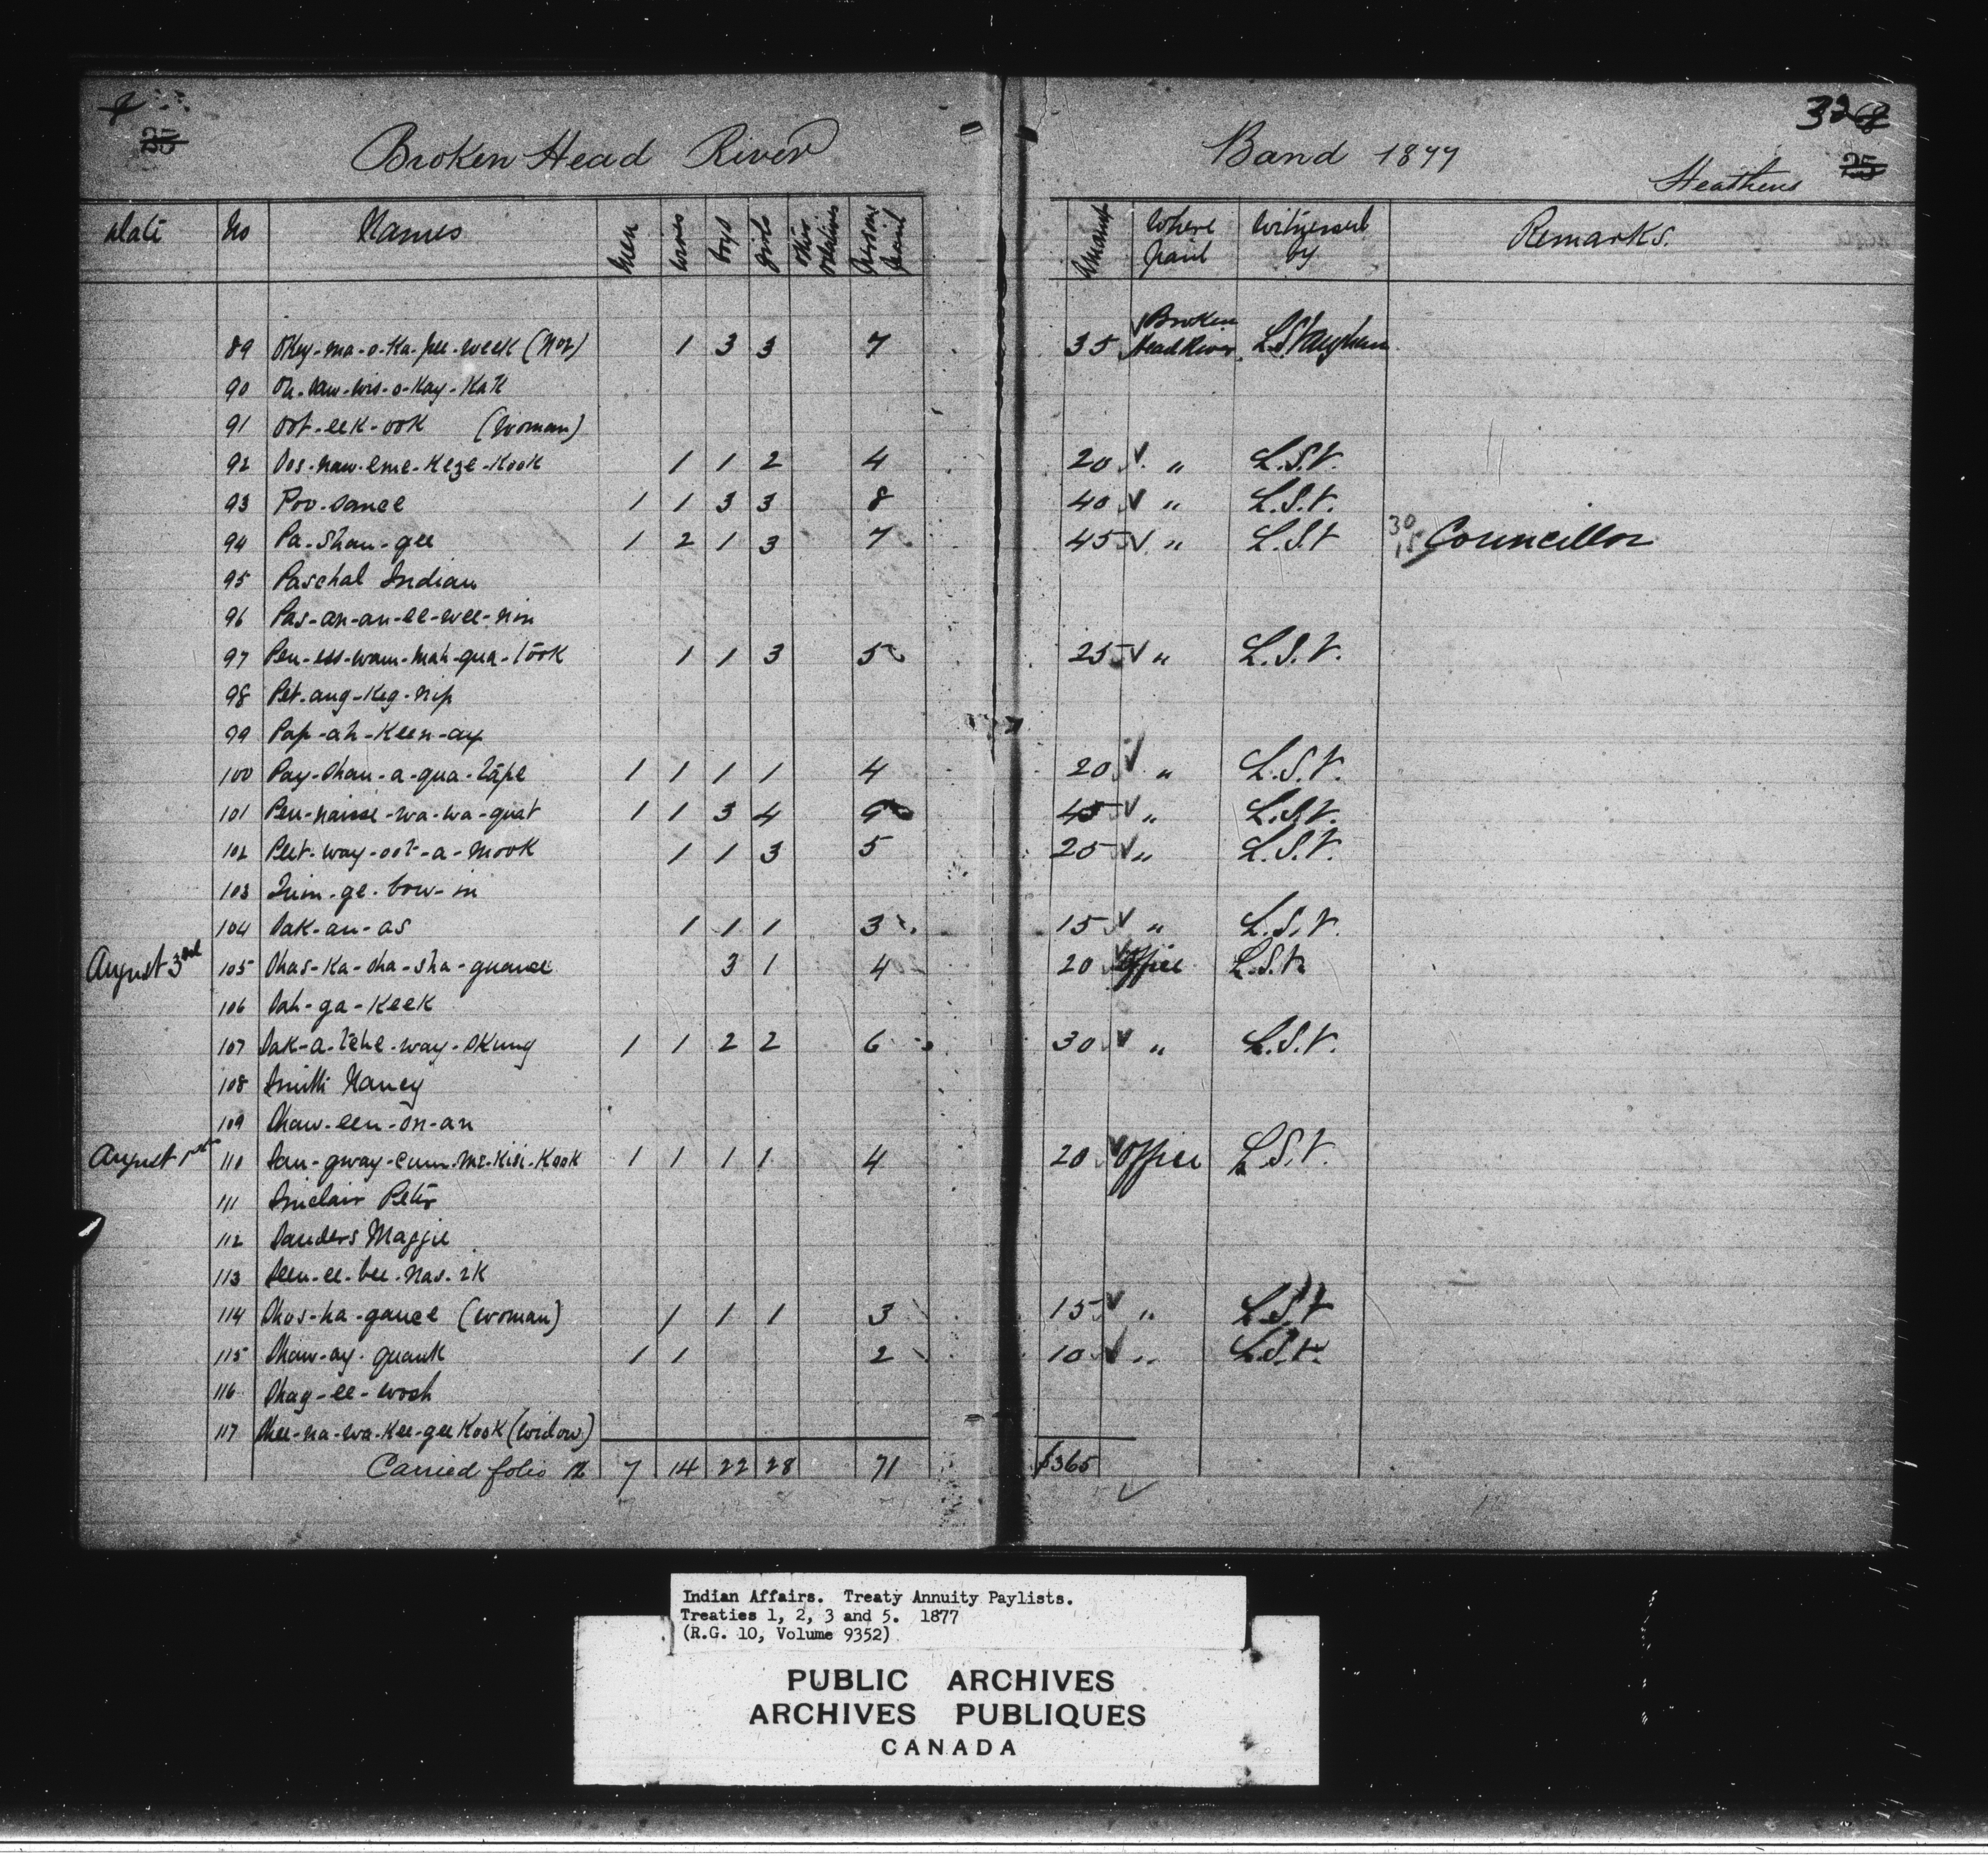 35
Broken Head River Band 1877
32
25
Heathens
Date No Names Men Wives Boys Girls Other Relatives Persons Paid Amount Where Paid Witnessed by Remarks.
89 Okey-ma-o-ka-pee-week 1 3 3 7 35 Broken Head River L.S. Vaughan
90
91 Oot-eek-ook (Woman)
92 Oos-naw-eme-keze-kook 1 1 2 4 20 " L.S.V.
93 Poo-sance 1 1 3 3 8 40 " L.S.V.
94 Pa-shan-gee 1 2 1 3 7 45 " L.S.V 30 15 Councillor
95 Paschal Indian
96 Pas-an-an-ee-wee-nin
97 Pen-ess-wam-mah-qua-took 1 1 3 5 25 " L.S.V.
98 Pet-ang-keg-nip
99 Pap-ah-keen-ay
100 Pay-shan-a-qua-tape 1 1 1 1 4 20 " L.S.V.
101 Pen-naisse-wa-wa-quat 1 1 3 4 9 45 " L.S.V.
102 Peet-way-oot-a-mook 1 1 3 5 25 " L.S.V.
103
104 Sak-an-as 1 1 1 3 15 " L.S.V.
August 3rd 105 Shas-ka-sha-sha-guance 3 1 4 20 Office L.S.V.
106 Sah-ga-keek
107 Sak-a-tche-way-skung 1 1 2 2 6 30 " L.S.V.
108 Smith Nancy
109 Shaw-een-on-an
August 1st 110 San-gway-cum-me-kisi-kook 1 1 1 1 4 20 Office L.S.V.
111 Sinclair Peter
112 Sanders Maggie
113 Seen-ee-bee-nas-ik
114 Shos-ka-gance (Woman) 1 1 1 3 15 " L.S.V
115 Shaw-ay-quank 1 1 2 10 " L.S.V.
116 Shag-ee-wosh
117 Shee-na-wa-kee-gee kook (Widow)
Carried folio 7 14 22 28 71 $365
Indian Affairs. Treaty Annuity Paylists.
Treaties 1, 2, 3 and 5. 1877
(R.G. 10, Volume 9352)
PUBLIC ARCHIVES
ARCHIVES PUBLIQUES
CANADA